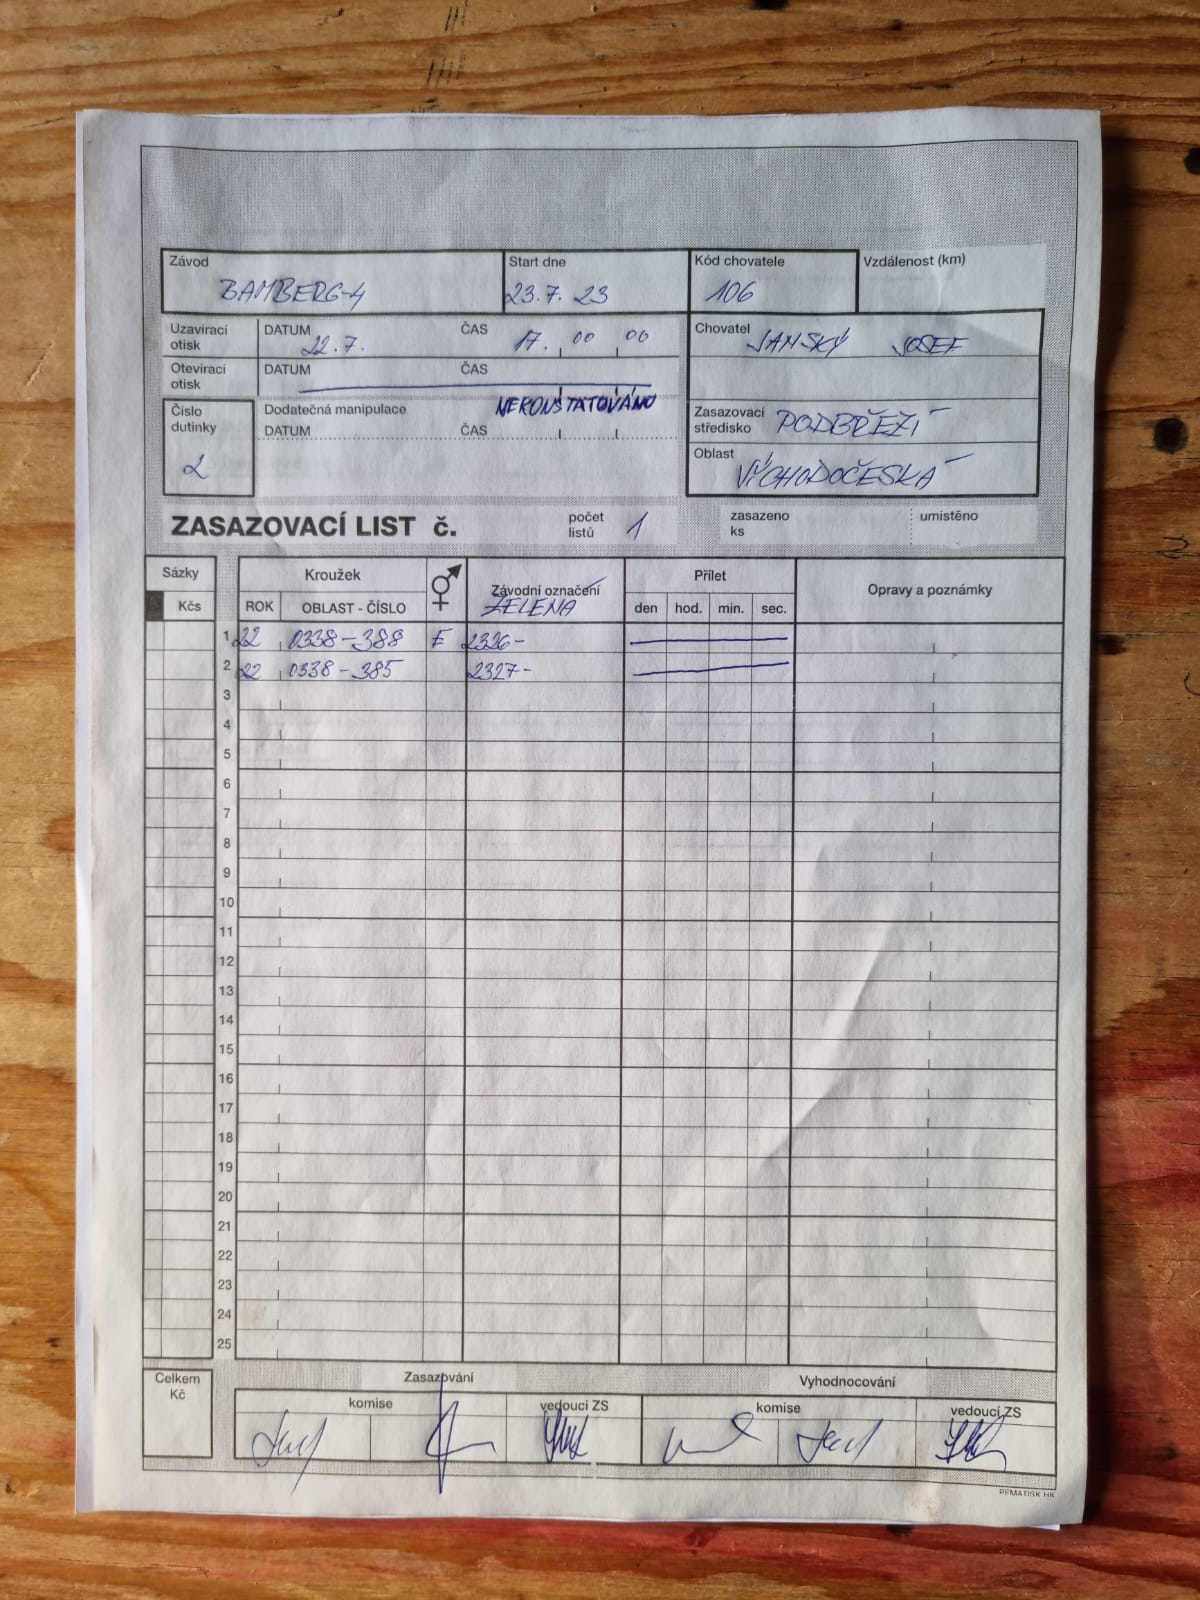 Závod Start dne Kód chovatele Vzdálenost (km)
BAMBERG-4 23.7. 23 106
Uzavírací otisk DATUM 22.7. ČAS 17. 00 00
Chovatel JANSKÝ JOSEF
Otevírací otisk DATUM ČAS
NEKONSTATOVÁNO
Číslo dutinky 2
Dodatečná manipulace
DATUM ČAS
Zasazovací středisko PODBŘEZÍ
Oblast VÝCHODOČESKÁ
ZASAZOVACÍ LIST č. počet listů 1 zasazeno ks umístěno
Sázky Kroužek Závodní označení Přílet Opravy a poznámky
Kčs ROK OBLAST - ČÍSLO ZELENÁ den hod. min. sec.
1 22 0338-388 E 2326-
2 22 0338-385 2327-
3
4
5
6
7
8
9
10
11
12
13
14
15
16
17
18
19
20
21
22
23
24
25
Celkem Kč
Zasazování Vyhodnocování
komise vedoucí ZS komise vedoucí ZS
PEMATISK HK